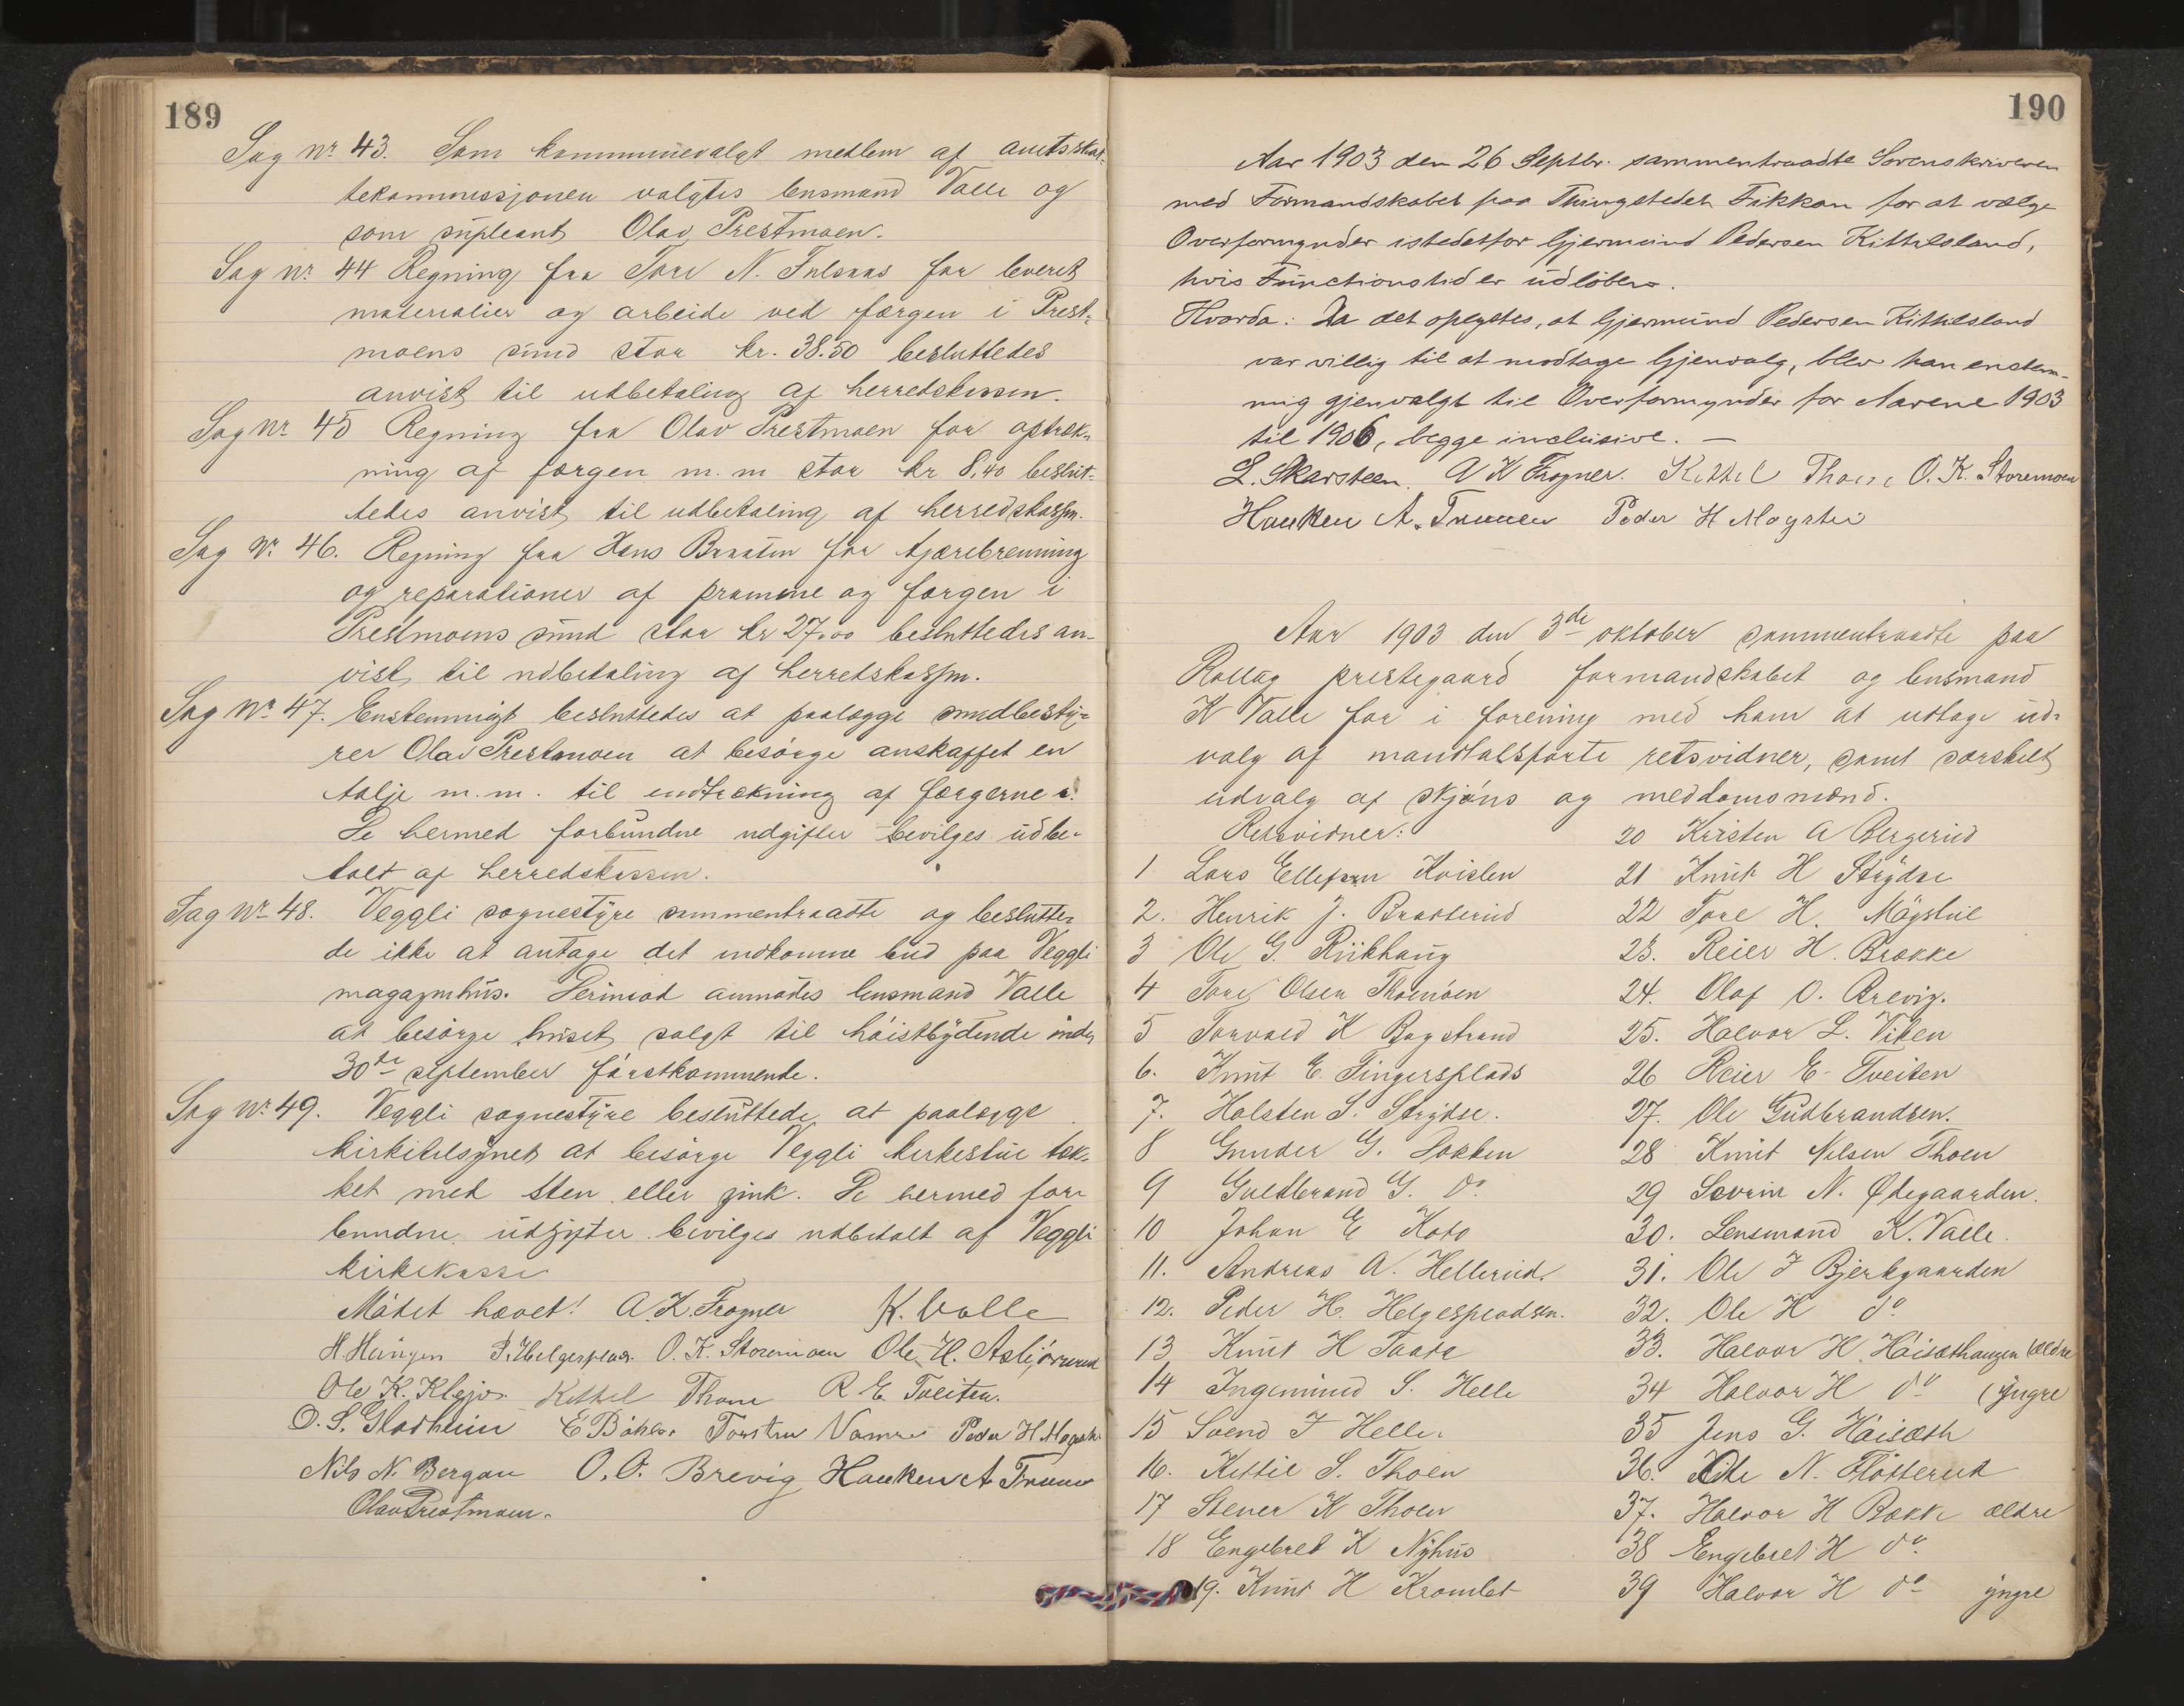 189
Sag Nr. 43. Som kommunevalgt medlem af amtsskat-
tekommissjonen valgtes lensmand Valle og
som supleant Olav Prestmoen.
Sag nr. 44 Regning fra Tore N. for leveret
materialier og arbeide ved færgen i Prest-
moens sund stor kr. 38.50 besluttedes
anvist til utbetaling af herredskassen.
Sag Nr. 45 Regning fra Olav Prestmoen for optræk-
ning af færgen m. m stor kr 8,40 beslut-
tedes anvist til udbetaling af herredskassen.
Sag Nr. 46. Regning fra Hans Braaten for tjærebrenning
og reparationer af pramme og færgen i
Prestmoens sund stor kr 27,00 besluttedes an-
vist til udbetaling af herredskassen.
Sag Nr. 47. Enstemmigt besluttedes at paalægge sundbesty-
rer Olav Prestmoen at besörge anskaffet en
talje m.m. til indtrækning af færgerne
De hermed forbundne udgifter bevilges udbe-
talt af herredskassen.
Sag Nr. 48. Veggli sognestyre sammentraadte og beslutte-
de ikke at antage det indkomne bud paa Veggli
magazinhus. Derimod anmodes lensmand Valle
at besörge huset solgt til höistbydende inden
30te september förstkommende.
Sag Nr. 49. Veggli sognestyre besluttede at paalægge
kirketilsynet at besörge Veggli kirkestue tæk-
ket med sten eller zink. De hermed for-
bundne udgifter bevilges udbetalt af Veggli
kirkekasse
Mödet hævet! A. K. Frogner K. Valle
H. Haugen P. Helgesplas. O. K. Storemoen Ole H.
Ole K. Klejos. Kittel Thoen R E. Tveiten.
O. S. Gladheim E Torsten Peder H
Nils N. Bergan O. O. Brevig Haaken A
Olav Prestmoen.
190
Aar 1903 den 26 Septbr. sammentraadte Sorenskriveren
med Formandskabet paa Thingstedet Fikkan for at vælge
Overformynder istedetfor Gjermund Pedersen Kittilsland,
hvis Functionstid er udløben.
Hvorda: Da det oplystes, at Gjermund Pedersen Kittilsland
var villig til at modtage Gjenvalg, blev han enstem-
mig gjenvalgt til Overformynder for Aarene 1903
til 1906, begge inclusive. —
L. Skarsteen. A K Frogner. Kittil Thoen O. K. Storemoen
Haaken A. Peder H
Aar 1903 den 3de oktober sammentraadte paa
Rollag prestegaard formandskabet og lensmand
K Valle for i forening med ham at udtage ud-
valg af mandtalsførte retsvidner, samt særskilt
udvalg af skjöns og meddomsmænd.
Retsvidner:
1 Lars Ellefsen Kvislen
2. Henrik J. Braaterud
3 Ole G.
4 Tore Olsen
5 Torvald K Bagstrand
6. Knut E. Fingersplads
7. Halsten S. Strÿdse.
8 Gunder G. Bakken
9 Guldbrand G. do.
10 Johan E Kato
11. Andreas A. Hellerud.
12. Peder H. Helgespladsen.
13 Knut H Taate
14 Ingemund S. Helle
15 Svend J Helle
16. Kittil S. Thoen
17 Stener K Thoen
18 Engebret K Nÿhus
19. Knut H Kromlet
20 Kristen A Bergerud
21 Knut H Strÿdse
22 Tore H. Mögstue
23. Reier H. Brække
24. Olaf O. Brevig.
25. Halvor L. Viken
26 Reier E Tveiten
27. Ole Gudbrandsen.
28 Knut Nelsen Thoen
29 Severin N. Ødegaarden.
30. Lensmand K. Valle.
31. Ole J Bjerkgaarden
32. Ole H do
33. Halvor H. Höisæthaugen (ældre
34 Halvor H do (ÿngre
35 Jens G. Höisæth
36. Ole N. Flötterud
37. Halvor H Bække ældre
38 Engebret H do
39 Halvor H do ÿngre